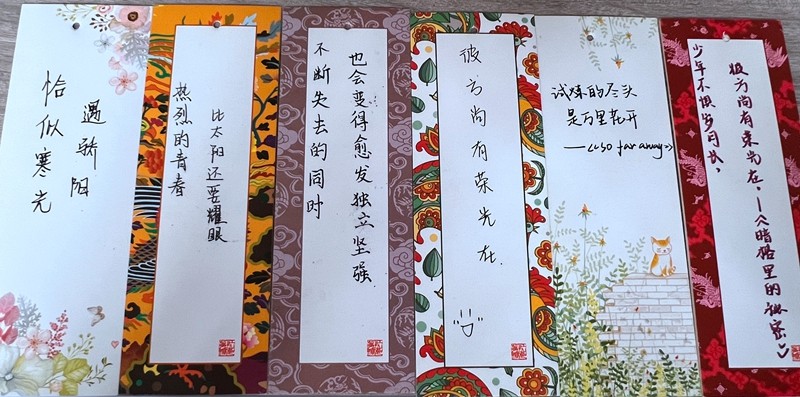 恰似寒光
遇骄阳
热烈的青春
比太阳还要耀眼
不断失去的同时
也会变得愈发独立坚强
彼方尚有荣光在.
试炼的尽头
是万里花开
—<<so far away>>
少年不惧岁月长，
彼方尚有荣光在.—《暗格里的秘密》